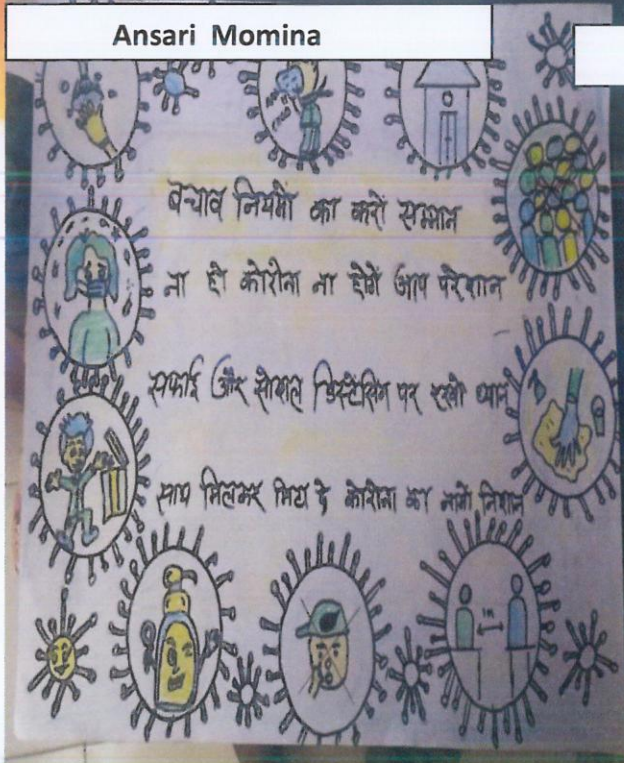 Ansari Momina
बचाव नियमों का करो सम्मान
ना हो कोरोना ना होंगे आप परेशान
सफाई और सोशल डिस्टेंसिंग पर रखो ध्यान
साथ मिलकर मिटा दे कोरोना का नामो निशान
1m